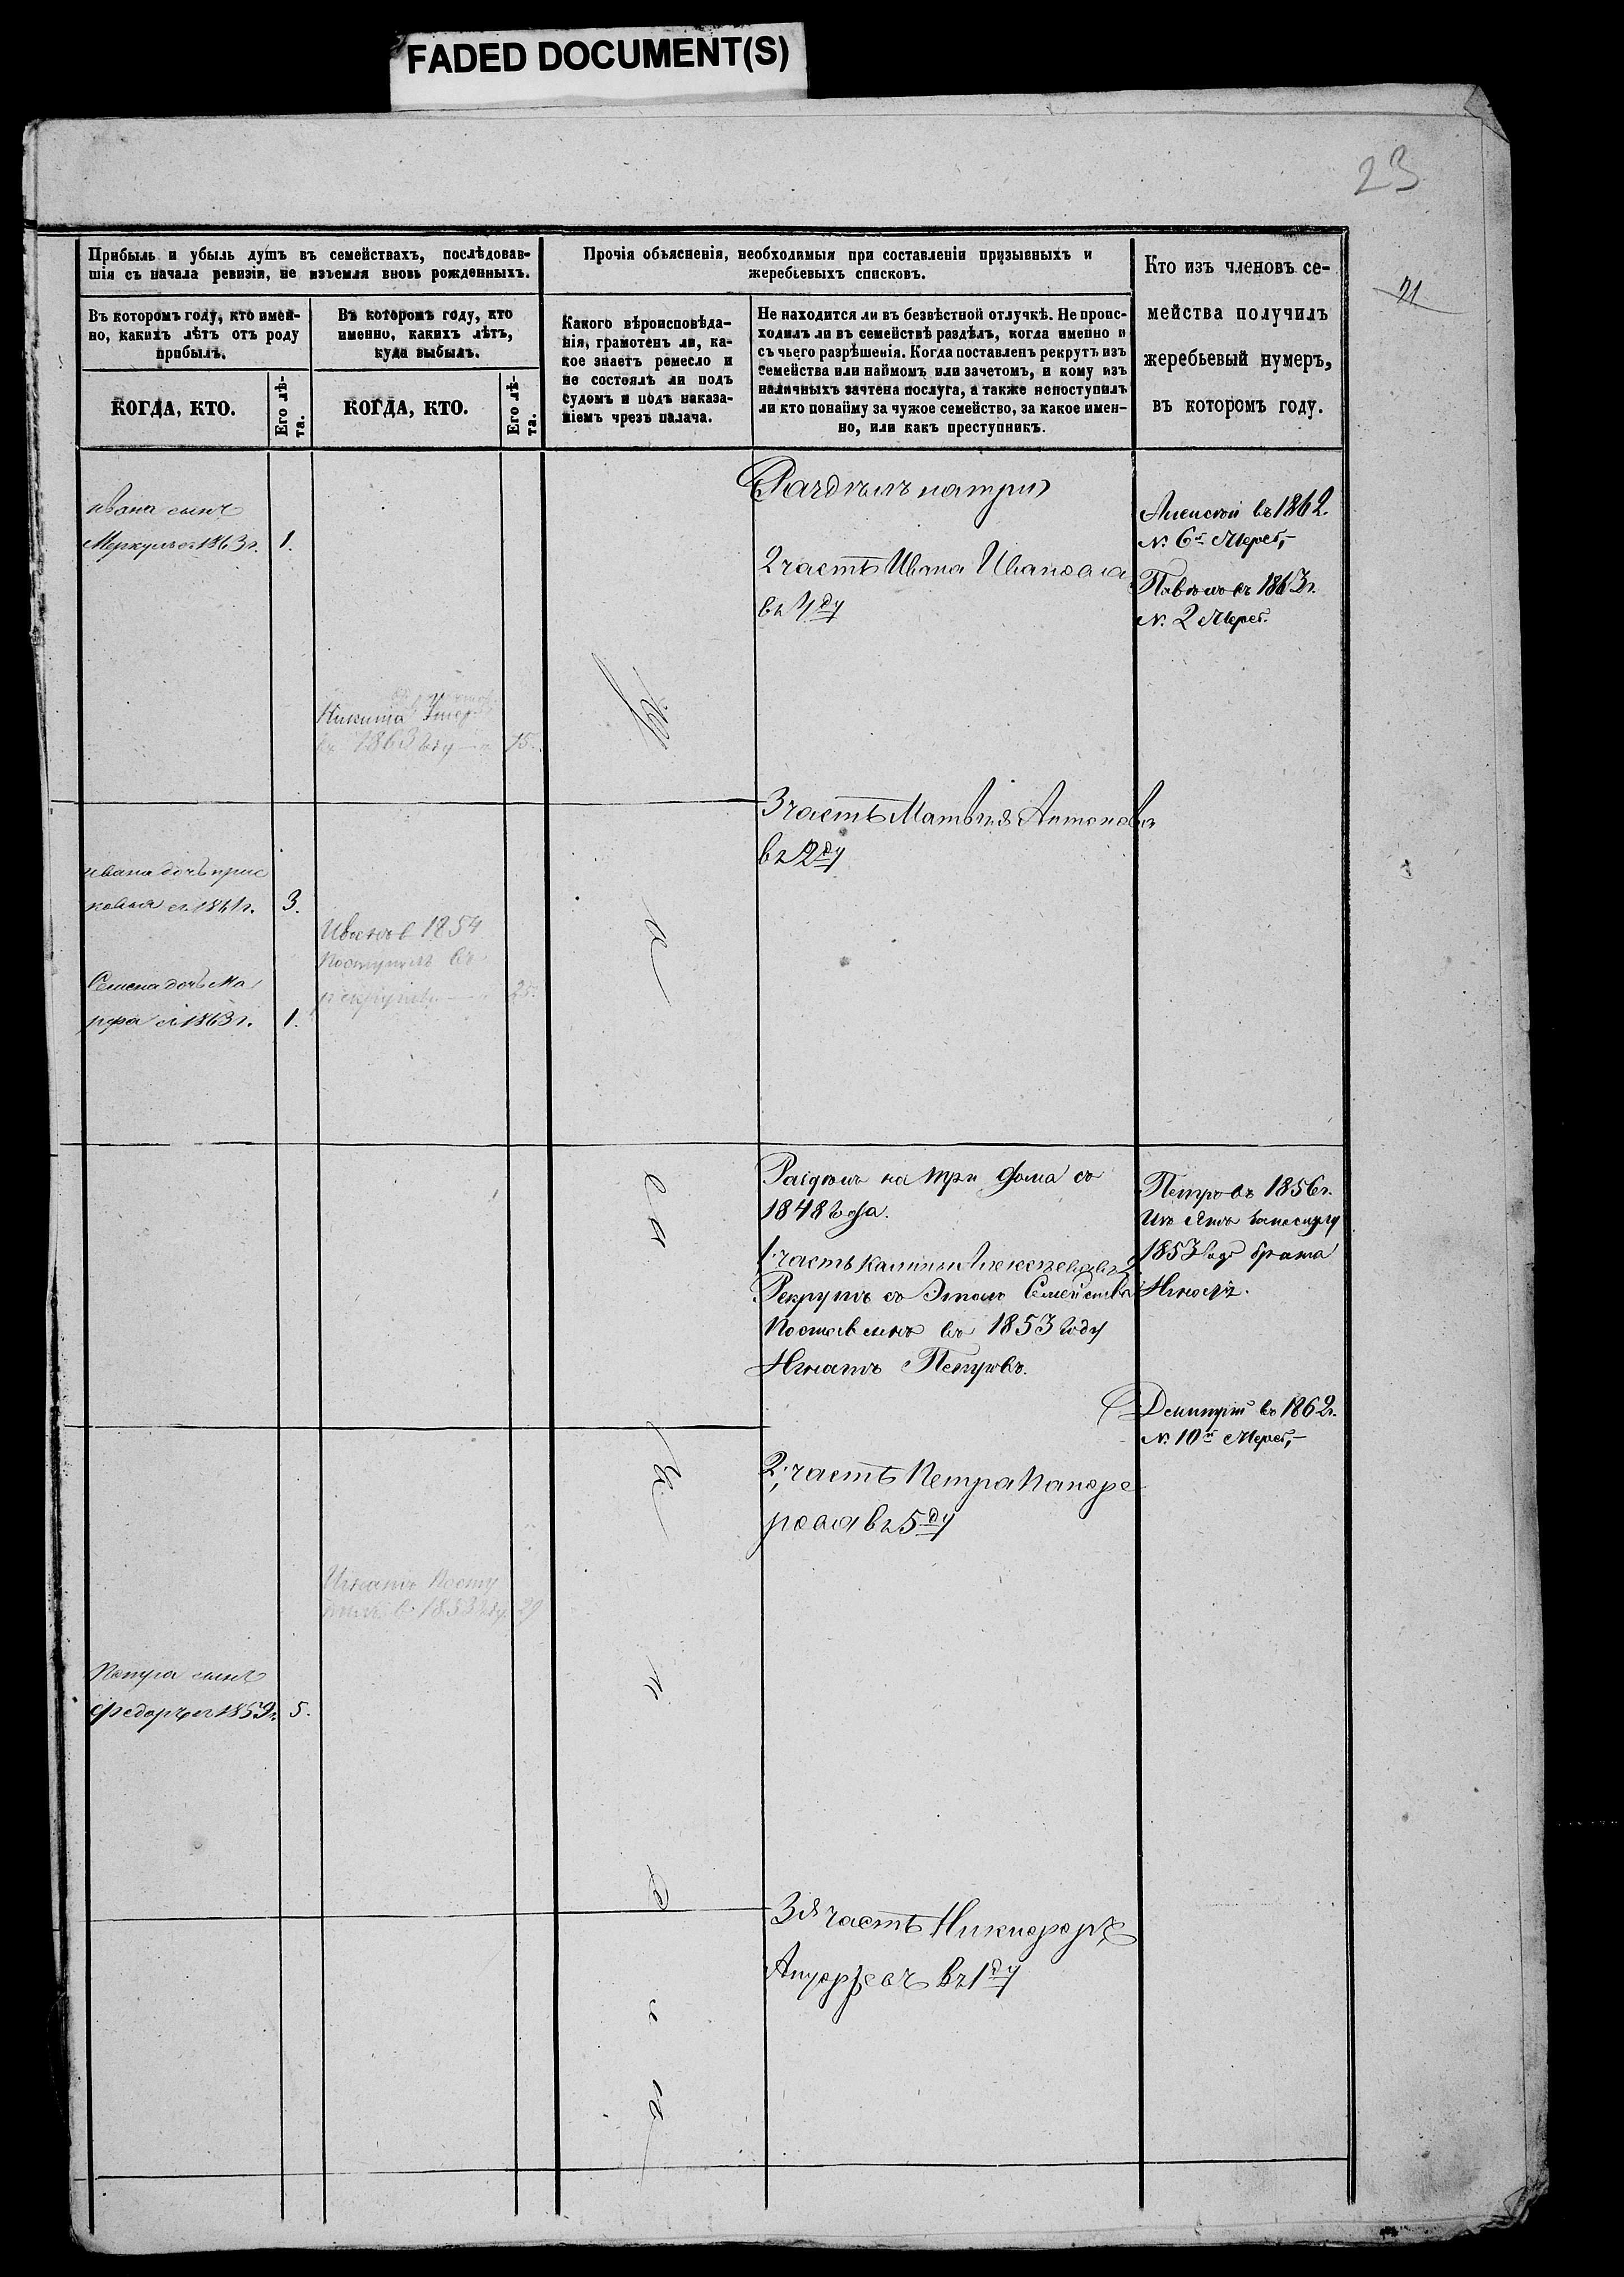 FADED DOCUMENT(S)
23
21
Прибыль и убыль душъ въ семействахъ, послѣдовав-
шія съ начала ревизіи, не изъемля вновь рожденныхъ.
Прочія объясненія, необходимыя при составленіи призывныхъ и
жеребьевыхъ списковъ.
Кто изъ членовъ се-
мейства получилъ
жеребьевый нумеръ,
въ которомъ году.
Въ которомъ году, кто имен-
но, какихъ лѣтъ отъ роду
прибылъ.
Въ которомъ году, кто
именно, какихъ лѣтъ,
куда выбылъ.
Какого вѣроисповѣда-
нія, грамотенъ ли, ка-
кое знаетъ ремесло и
не состоялъ ли подъ
судомъ и подъ наказа-
ніемъ чрезъ палача.
Не находится ли въ безвѣстной отлучкѣ. Не проис-
ходилъ ли въ семействѣ раздѣлъ, когда именно и
съ чьего разрѣшенія. Когда поставленъ рекрутъ изъ
семейства или наймомъ или зачетомъ, и кому изъ
наличныхъ зачтена послуга, а также непоступилъ
ли кто понайму за чужое семейство, за какое имен-
но, или какъ преступникъ.
КОГДА, КТО.
Его лѣ-
та.
КОГДА, КТО.
Его лѣ-
та.
ивана сынъ
Меркулъ съ 1863 г. 1.
Раздѣлъ натри
2 часть Ивана Иванова
въ 4ду
Алексѣй въ 1862.
№ 6й Жереб,-
Павелъ въ 1863 г.
№ 2 Жереб.
Никита умеръ
въ 1863 году 15.
3 часть Матвѣя Антонова
въ 2ду
ивана дочь прас
ковья съ 1861 г. 3.
Иванъ в 1854
поступилъ въ
рекруты 25.
Семена дочь Ма
рфа съ 1863 г. 1.
Раздѣлъ на три дома съ
1848 года.
1. часть Калины Алексѣева въ 2
Рекрутъ съ Этаго Семейства
Поставленъ въ 1853 году
Игнатъ Петровъ.
Петръ въ 1856 г.
1853 году брата
Игнатъ.
Дмитрій въ 1862 г.
№ 10й Жереб,-
2; часть Петра
въ 5ду
Игнатъ Посту
пилъ в 1853 году 29
Петра сынъ
Федоръ съ 1859 г. 5.
3я часть Никифоръ
въ 1ду